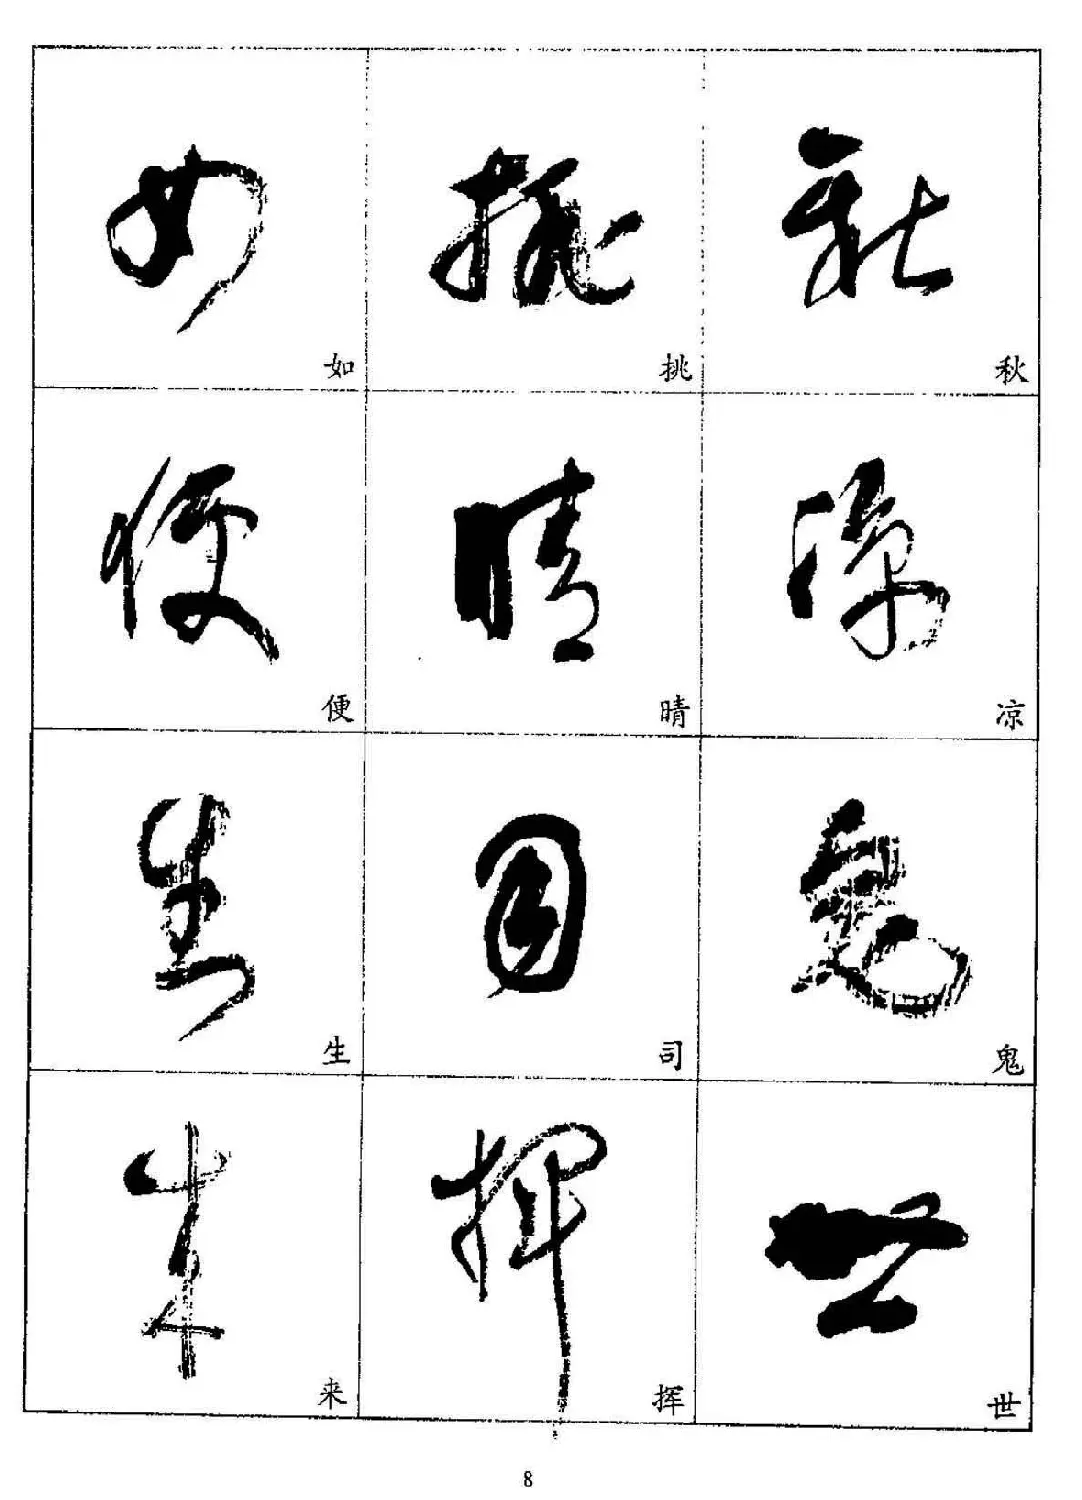 如 挑 秋
便 晴 凉
生 司 鬼
来 挥 世
8